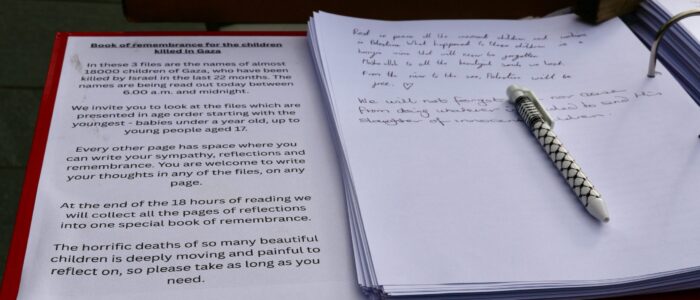 Book of remembrance for the children
killed in Gaza
In these 3 files are the names of almost
18000 children of Gaza, who have been killed
by Israel in the last 22 months. The
names are being read out today between
6.00 a.m. and midnight.
We invite you to look at the files which are
presented in age order starting with the
youngest - babies under a year old, up to
young people aged 17.
Every other page has space where you
can write your sympathy, reflections and
remembrance. You are welcome to write
your thoughts in any of the files, on any
page.
At the end of the 18 hours of reading we
will collect all the pages of reflections
into one special book of remembrance.
The horrific deaths of so many beautiful
children is deeply moving and painful to
reflect on, so please take as long as you
need.
Rest in peace all the innocent children and
in Palestine. What happened to these children is a
crime that will never be forgotten
is all the
From the river to the sea, Palestine will be
free. ♡
We will not forget nor cease
from doing to end this
slaughter of innocent children.